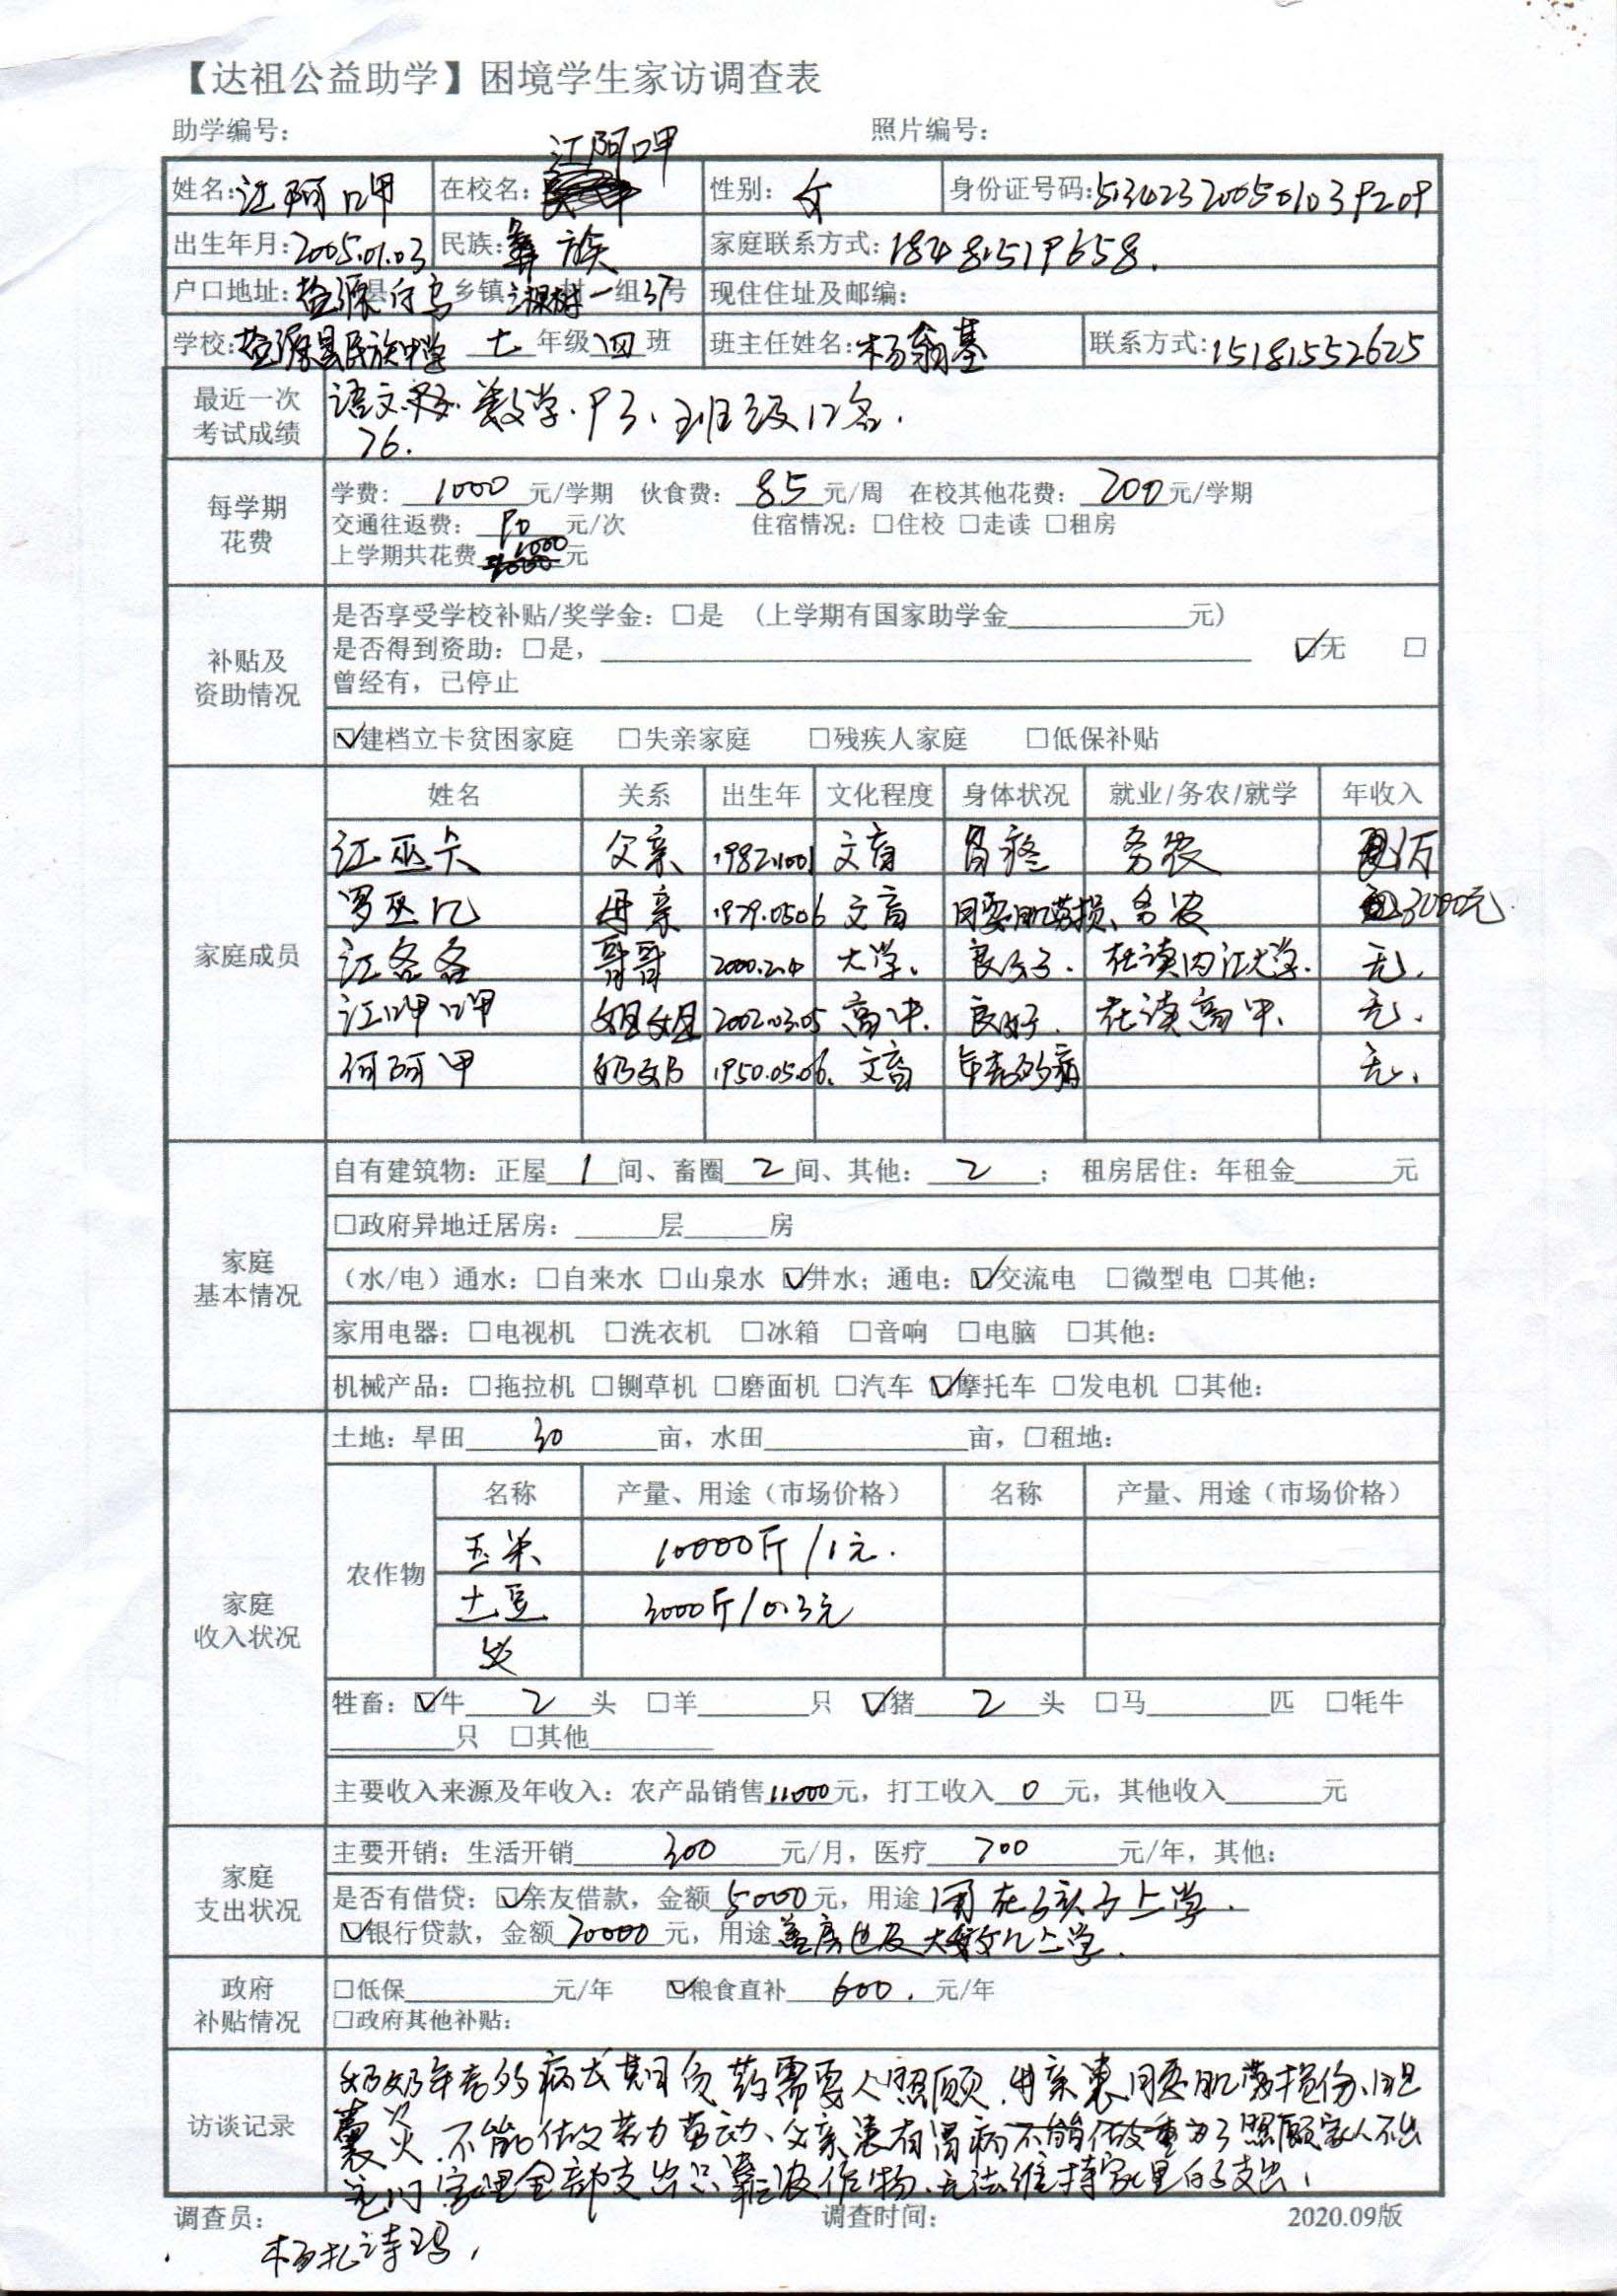 【达祖公益助学】困境学生家访调查表
助学编号： 照片编号：
江阿呷
姓名：江阿呷 在校名： 性别：女 身份证号码：513423200501039209
出生年月：2005.01.03 民族：彝族 家庭联系方式：18481519658.
户口地址：盐源县白乌乡镇 村一组37号 现住住址及邮编：
学校：盐源县民族中学 七年级四班 班主任姓名：杨翁基 联系方式：15181552625
最近一次考试成绩 语文 数学.93、班级12名.
76.
每学期花费 学费：1000元/学期 伙食费：85元/周 在校其他花费：200元/学期
交通往返费：90元/次 住宿情况：□住校 □走读 □租房
上学期共花费1000元
补贴及资助情况 是否享受学校补贴/奖学金：□是 （上学期有国家助学金 元）
是否得到资助：□是， ☑无 □
曾经有，已停止
☑建档立卡贫困家庭 □失亲家庭 □残疾人家庭 □低保补贴
家庭成员 姓名 关系 出生年 文化程度 身体状况 就业/务农/就学 年收入
江巫卡 父亲 1982.1001 文盲 胃疼 务农 1万
罗巫几 母亲 1979.0506 文盲 腰肌劳损、务农 3000元.
江各各 哥哥 2000.2.4 大学. 良好. 在读内江大学. 无.
江呷呷 姐姐 2002.03.05 高中. 良好. 在读高中. 无.
何阿甲 奶奶 1950.05.06. 文盲 年老多病 无.
家庭基本情况 自有建筑物：正屋1间、畜圈2间、其他：2； 租房居住：年租金 元
□政府异地迁居房： 层 房
（水/电）通水：□自来水 □山泉水 ☑井水；通电：☑交流电 □微型电 □其他：
家用电器：□电视机 □洗衣机 □冰箱 □音响 □电脑 □其他：
机械产品：□拖拉机 □铡草机 □磨面机 □汽车 ☑摩托车 □发电机 □其他：
家庭收入状况 土地：旱田30亩，水田 亩，□租地：
农作物 名称 产量、用途（市场价格） 名称 产量、用途（市场价格）
玉米 10000斤/1元.
土豆 3000斤/0.3元
牲畜：☑牛2头 □羊 只 ☑猪2头 □马 匹 □牦牛
只 □其他
主要收入来源及年收入：农产品销售11000元，打工收入0元，其他收入 元
家庭支出状况 主要开销：生活开销300元/月，医疗700元/年，其他：
是否有借贷：☑亲友借款，金额5000元，用途用在孩子上学.
☑银行贷款，金额20000元，用途盖房也及大 上学.
政府补贴情况 □低保 元/年 ☑粮食直补600.元/年
□政府其他补贴：
访谈记录 奶奶年老多病长期负药需要人照顾.母亲患 腰肌劳损份、胆
囊炎.不能做劳力劳动、父亲患有胃病不能做重为了照顾家人不出
远门 家里全部支出只靠农作物、无法维持家里的支出.
调查员： 调查时间： 2020.09版
杨扎诗玛.